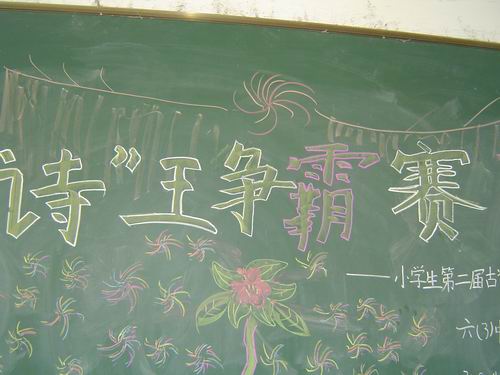 诗”王争霸赛
——小学生第二届古
六(3)中